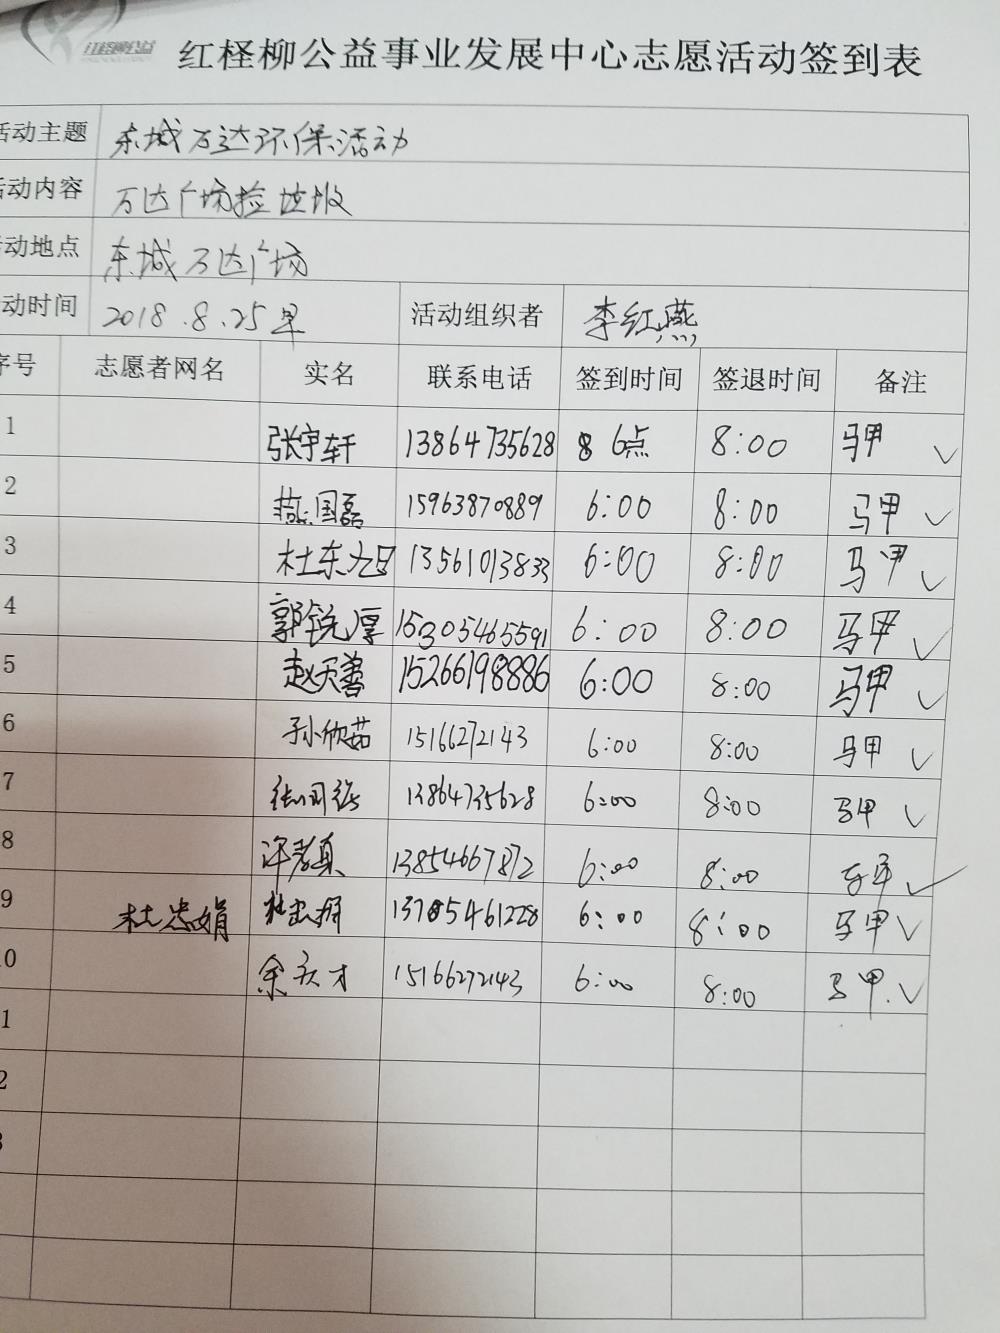 红柽柳公益
红柽柳公益事业发展中心志愿活动签到表
活动主题 东城万达环保活动
活动内容 万达广场捡垃圾
活动地点 东城万达广场
动时间 2018.8.25早 活动组织者 李红燕
序号 志愿者网名 实名 联系电话 签到时间 签退时间 备注
1 张宇轩 13864735628 6点 8:00 马甲 ✓
2 国磊 15963870889 6:00 8:00 马甲 ✓
3 杜东旭 13561013833 6:00 8:00 马甲 ✓
4 郭锐厚 15305465591 6:00 8:00 马甲 ✓
5 赵天善 15266198886 6:00 8:00 马甲 ✓
6 孙欣茹 15166272143 6:00 8:00 马甲 ✓
7 13864735628 6:00 8:00 马甲 ✓
8 许孝真 13854667872 6:00 8:00 马甲 ✓
9 杜忠娟 杜忠娟 13705461228 6:00 8:00 马甲 ✓
0 余庆才 15166272143 6:00 8:00 马甲 ✓
1
2
3